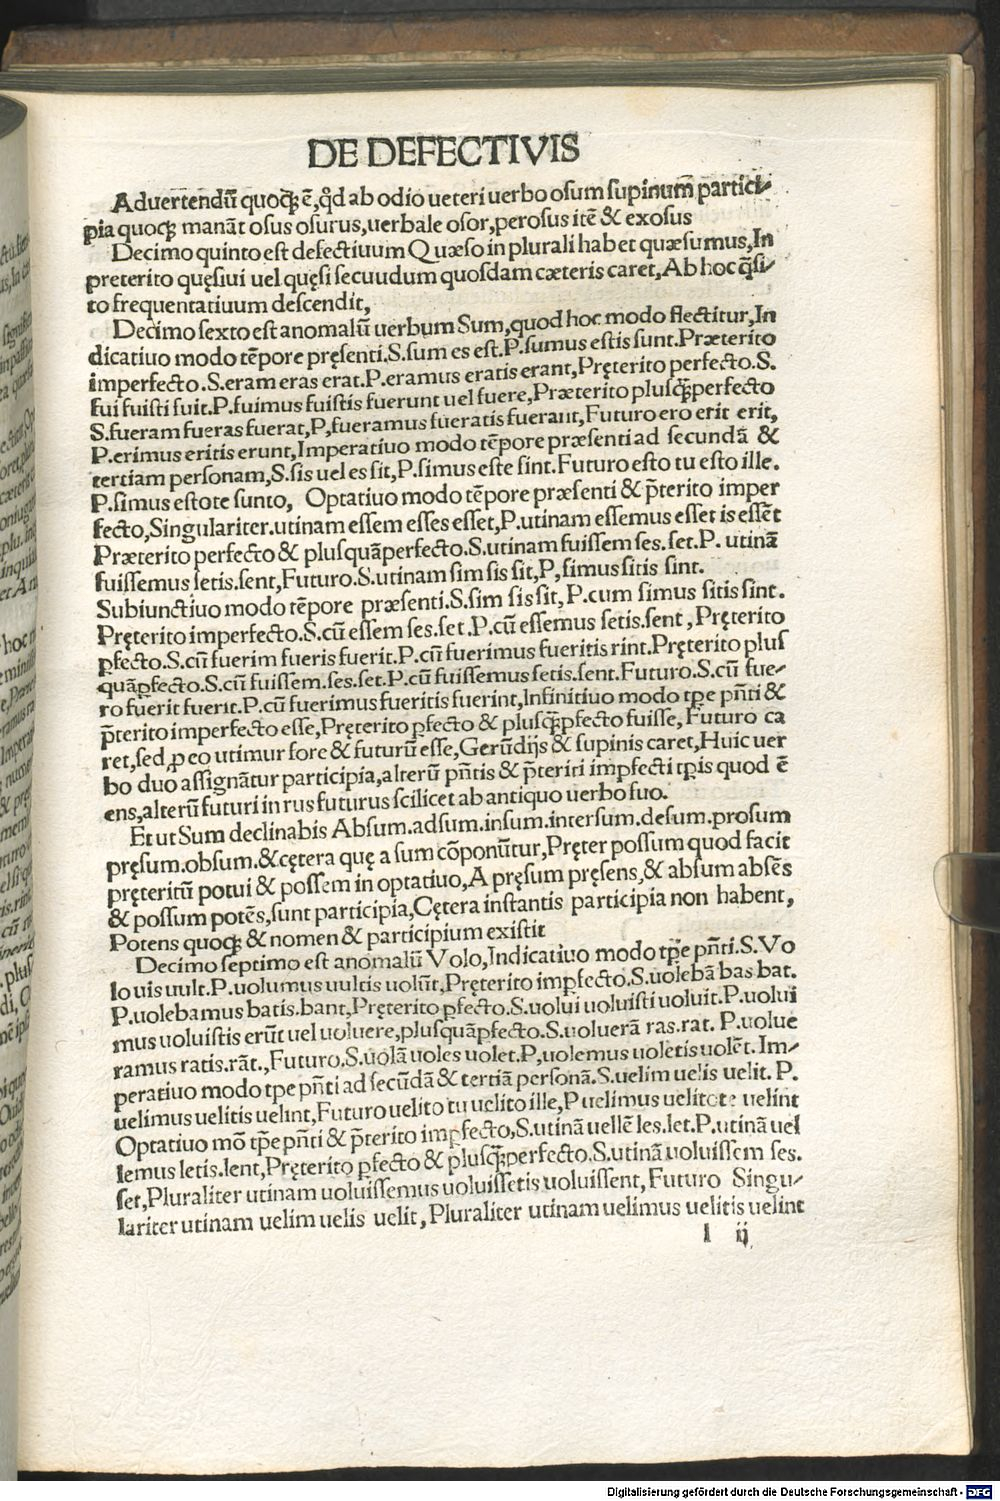 DE DEFECTIVIS
Aduertendũ quoqꝫ ẽ,qd̃ ab odio ueteri uerbo osum supinum partici-
pia quoqꝫ manãt osus osurus,uerbale osor,perosus itẽ & exosus
Decimo quinto est defectiuum Quæso in plurali habet quæsumus,In
preterito quęsiui uel quęsi secuudum quosdam cæteris caret,Ab hoc q̃si-
to frequentatiuum descendit,
Decimo sexto est anomalũ uerbum Sum,quod hoc modo flectitur,In
dicatiuo modo tẽpore pręsenti.S.sum es est.P.sumus estis sunt.Præterito
imperfecto.S.eram eras erat.P.eramus eratis erant,Pręterito perfecto.S.
fui fuisti fuit.P.fuimus fuistis fuerunt uel fuere,Præterito plusqꝫperfecto
S.fueram fueras fuerat,P,fueramus fueratis fuerant,Futuro ero erit erit,
P.erimus eritis erunt,Imperatiuo modo tẽpore præsenti ad secundã &
tertiam personam,S.sis uel es sit,P.simus este sint.Futuro esto tu esto ille.
P.simus estote sunto, Optatiuo modo tẽpore præsenti & p̃terito imper
fecto,Singulariter.utinam essem esses esset,P.utinam essemus esset is essẽt
Præterito perfecto & plusquãperfecto.S.utinam fuissem ses.set.P. utinã
fuissemus setis.sent,Futuro.S.utinam sim sis sit,P,simus sitis sint.
Subiunctiuo modo tẽpore præsenti.S.sim sis sit,P.cum simus sitis sint.
Pręterito imperfecto.S.cũ essem ses.set.P.cũ essemus setis.sent,Pręterito
ꝑfecto.S.cũ fuerim fueris fuerit.P.cũ fuerimus fueritis rint.Pręterito plus
quãꝑfecto.S.cũ fuissem.ses.set.P.cũ fuissemus setis.sent.Futuro.S.cũ fue-
ro fuerit fuerit.P.cũ fuerimus fueritis fuerint,Infinitiuo modo tꝑe pñti &
p̃terito imperfecto esse,Pręterito ꝑfecto & plusqꝫꝑfecto fuisse,Futuro ca
ret,sed ꝓ eo utimur fore & futurũ esse,Gerũdijs & supinis caret,Huic uer
bo duo assignãtur participia,alterũ pñtis & p̃teriti impfecti tꝑis quod ẽ
ens,alterũ futuri in rus futurus scilicet ab antiquo uerbo fuo.
Et ut Sum declinabis Absum.adsum.insum.intersum.desum.prosum
pręsum.obsum.&cętera quę a sum cõponũtur,Pręter possum quod facit
pręteritũ potui & possem in optatiuo,A pręsum pręsens,& absum absẽs
& possum potẽs,sunt participia,Cętera instantis participia non habent,
Potens quoqꝫ & nomen & participium existit
Decimo septimo est anomalũ Volo,Indicatiuo modo tꝑe pñti.S.Vo
lo uis uult.P.uolumus uultis uolũt,Pręterito impꝑfecto.S.uolebã bas bat.
P.uolebamus batis.bant,Pręterito ꝑfecto.S.uolui uoluisti uoluit.P.uolui
mus uoluistis erũt uel uoluere,plusquãꝑfecto.S.uoluerã ras.rat. P.uolue
ramus ratis.rãt.,Futuro.S.uolã uoles uolet.P,uolemus uoletis uolẽt.Im-
peratiuo modo tpe pñti ad secũdã & tertiã personã.S.uelim uelis uelit. P.
uelimus uelitis uelint,Futuro uelito tu uelito ille,P uelimus uelitote uelint
Optatiuo mõ tꝑe pñti & p̃terito impꝑfecto,S.utinã uellẽ les.let.P.utinã uel
lemus letis.lent,Pręterito ꝑfecto & plusqꝫperfecto.S.utinã uoluissem ses.
set,Pluraliter utinam uoluissemus uoluissetis uoluissent,Futuro Singu-
lariter utinam uelim uelis uelit,Pluraliter utinam uelimus uelitis uelint
l ij
Digitalisierung gefördert durch die Deutsche Forschungsgemeinschaft - DFG